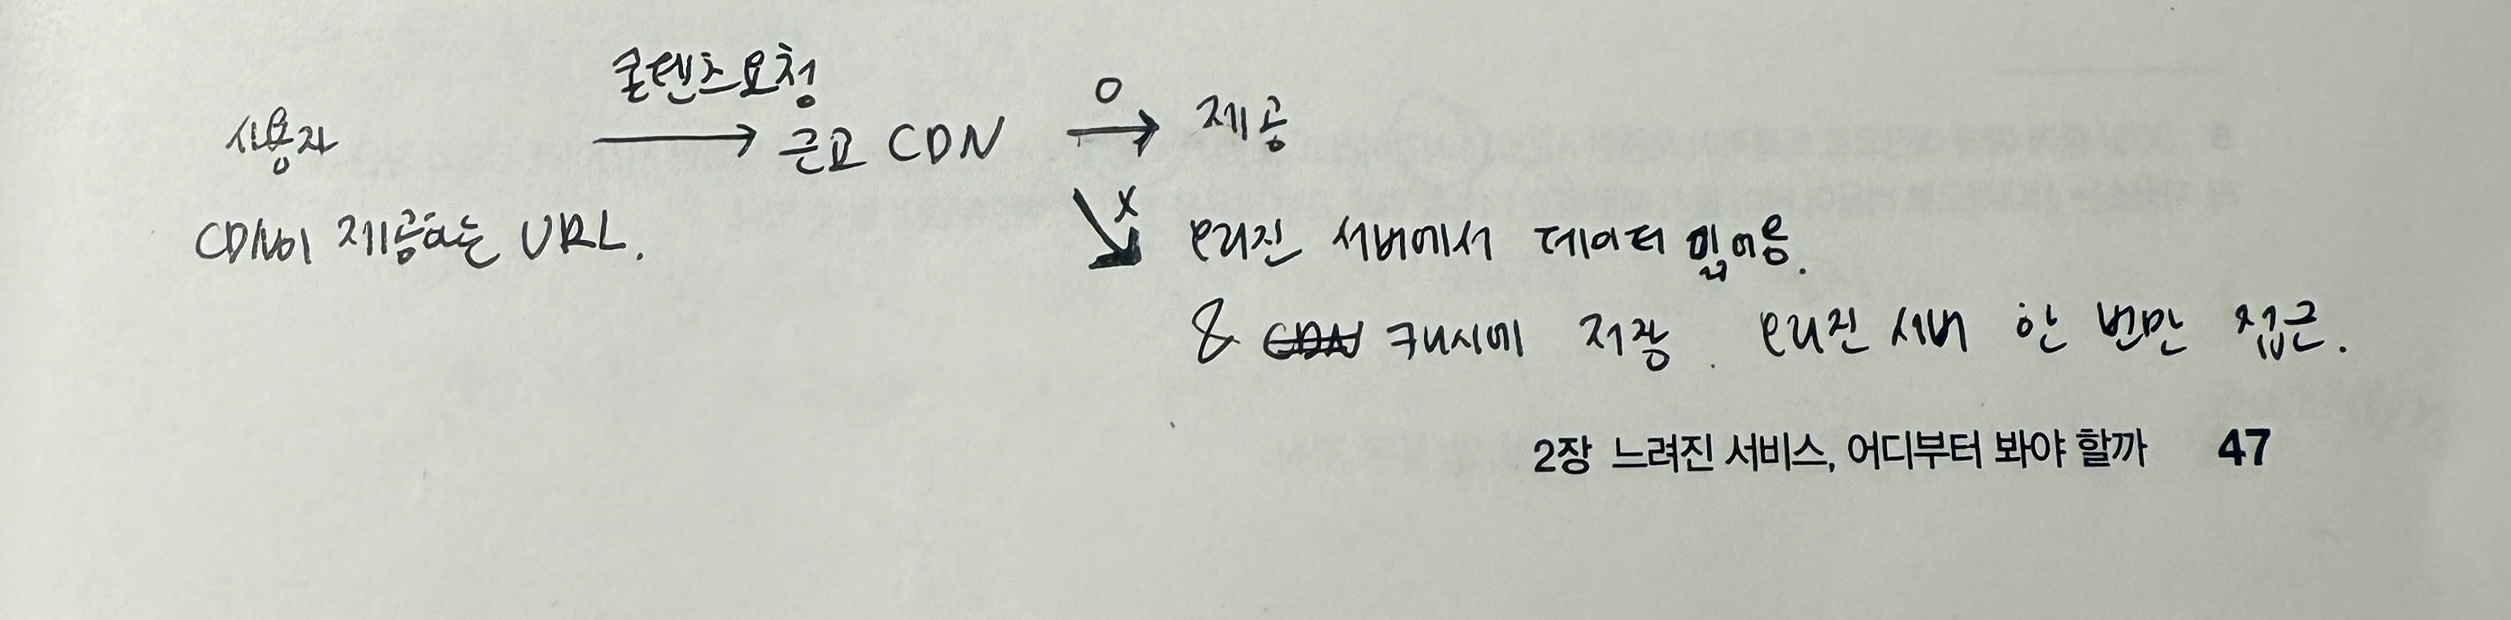 콘텐츠 요청
사용자 → 근교 CDN → O 제공
CDN이 제공하는 URL.
↘ X 오리진 서버에서 데이터 읽어옴.
& 캐시에 저장. 오리진 서버 한 번만 접근.
2장 느려진 서비스, 어디부터 봐야 할까 47